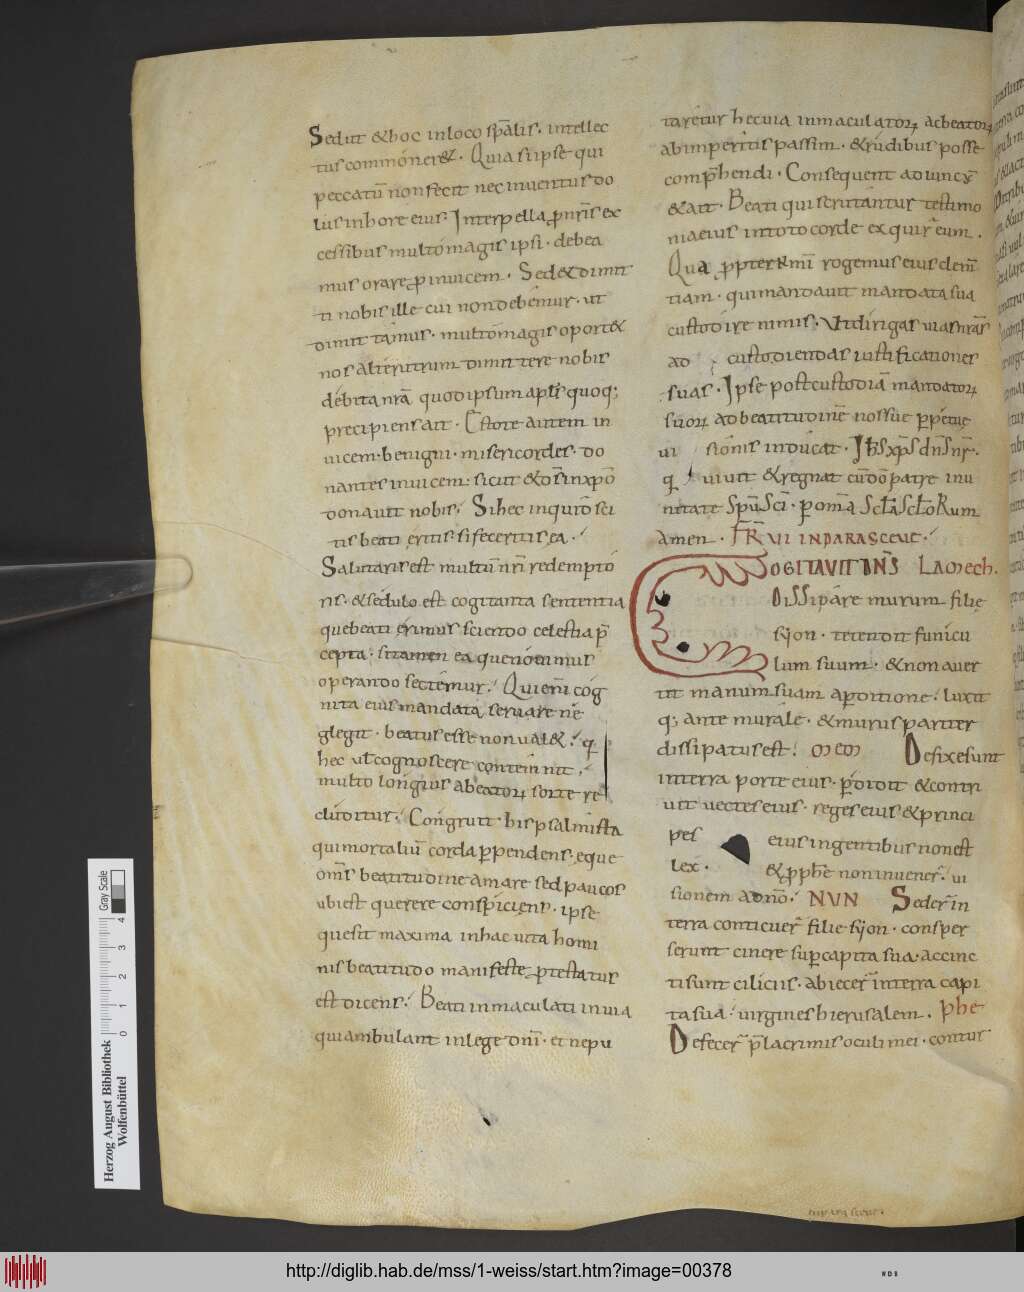 Sed ut & hoc in loco sp̄alis · intellec
tus commoner&· Quia si ipse qui
peccatū non fecit nec inuentus do
lus in hore eius· Interpella p nr̄is ex
cessibus multo magis ipsi · debea
mus orare p inuicem · Sed & dimit
ti nobis ille cui non debemur · ut
dimittamus · multo magis oport&
nos alterutrum dimittere nobis
debita nr̄a quod ipsum apl̄s quoq;
precipiens ait · Estote autem in
uicem · benigni · misericordes · do
nantes inuicem: sicut & ds̄ in xpō
donauit nobis · Si hec inquid sci
tis beati eritis si feceritis ea ·
Salutaris est multū nr̄i redemptо
ris · & sedulo est cogitanta sententia
que beati erimus sciendo celestia p̄
cepta · si tamen ea que nouimus
operando sectemur · Qui eni cog
nita eius mandata seruare ne
glegit · beatus esse non ual& · q
hec ul cognoscere contemnit ·
multo longius a beatoꝝ sorte re
cluditur · Congruit · his psalmista
qui mortaliū corda perpendens · eque
om̄s beatitudine amare sed paucos
ubi est querere conspiciens · ipse
quesit maxima in hac uita homi
nis beatitudo manifeste ptestatus
est dicens · Beati inmaculati in uia
qui ambulant in lege dn̄i · et ne pu
taretur hec uia inmaculatoꝝ ac beatoꝝ
ab imperitis passim · & rudibus posse
comp̄hendi · Consequent adiuncx̄
& ait · Beati qui scrutantur testimo
nia eius in toto corde exquir̄ eum ·
Qua ppter kmi rogemus eius clem̄
tiam · qui mandauit mandata sua
custodire nimis · Ut dirigas uias nr̄as
ad custodiendas iustificationes
suas · Ipse post custodiā mandatoꝝ
suoꝝ ad beatitudinē nos sue ppetuę
ui sionis inducat · Ihs xp̄s dn̄s nr̄ ·
q uiuit & regnat cū dō patre in u
nitate Sp̄u Sc̄i · p om̄a Scl̄a Scl̄oRum
amen · FR̄ VI IN PARASCEUE ·
COGITAVIT DN̄S LAmech.
Dissipare murum filie
syon · tetendit funicu
lum suum · & non auer
tit manum suam a pditione · luxit
q; ante murale · & murus pariter
dissipatus est · mem Defixe sunt
in terra porte eius · pdidit & contri
uit uectes eius · reges eius & princi
pes eius in gentibus non est
lex · & pphe non inuener̄ · ui
sionem a dn̄o · NVN Seder̄ in
terra conticuer̄ filie syon · consper
serunt cinere sup capita sua · accinc
ti sunt ciliciis · abiecer̄ in terra capi
ta sua · uirgines hierusalem · phe
Defecer̄ p̄ lacrimis oculi mei · contur
Herzog August Bibliothek
Wolfenbüttel
0 1 2 3 4
Gray Scale
http://diglib.hab.de/mss/1-weiss/start.htm?image=00378